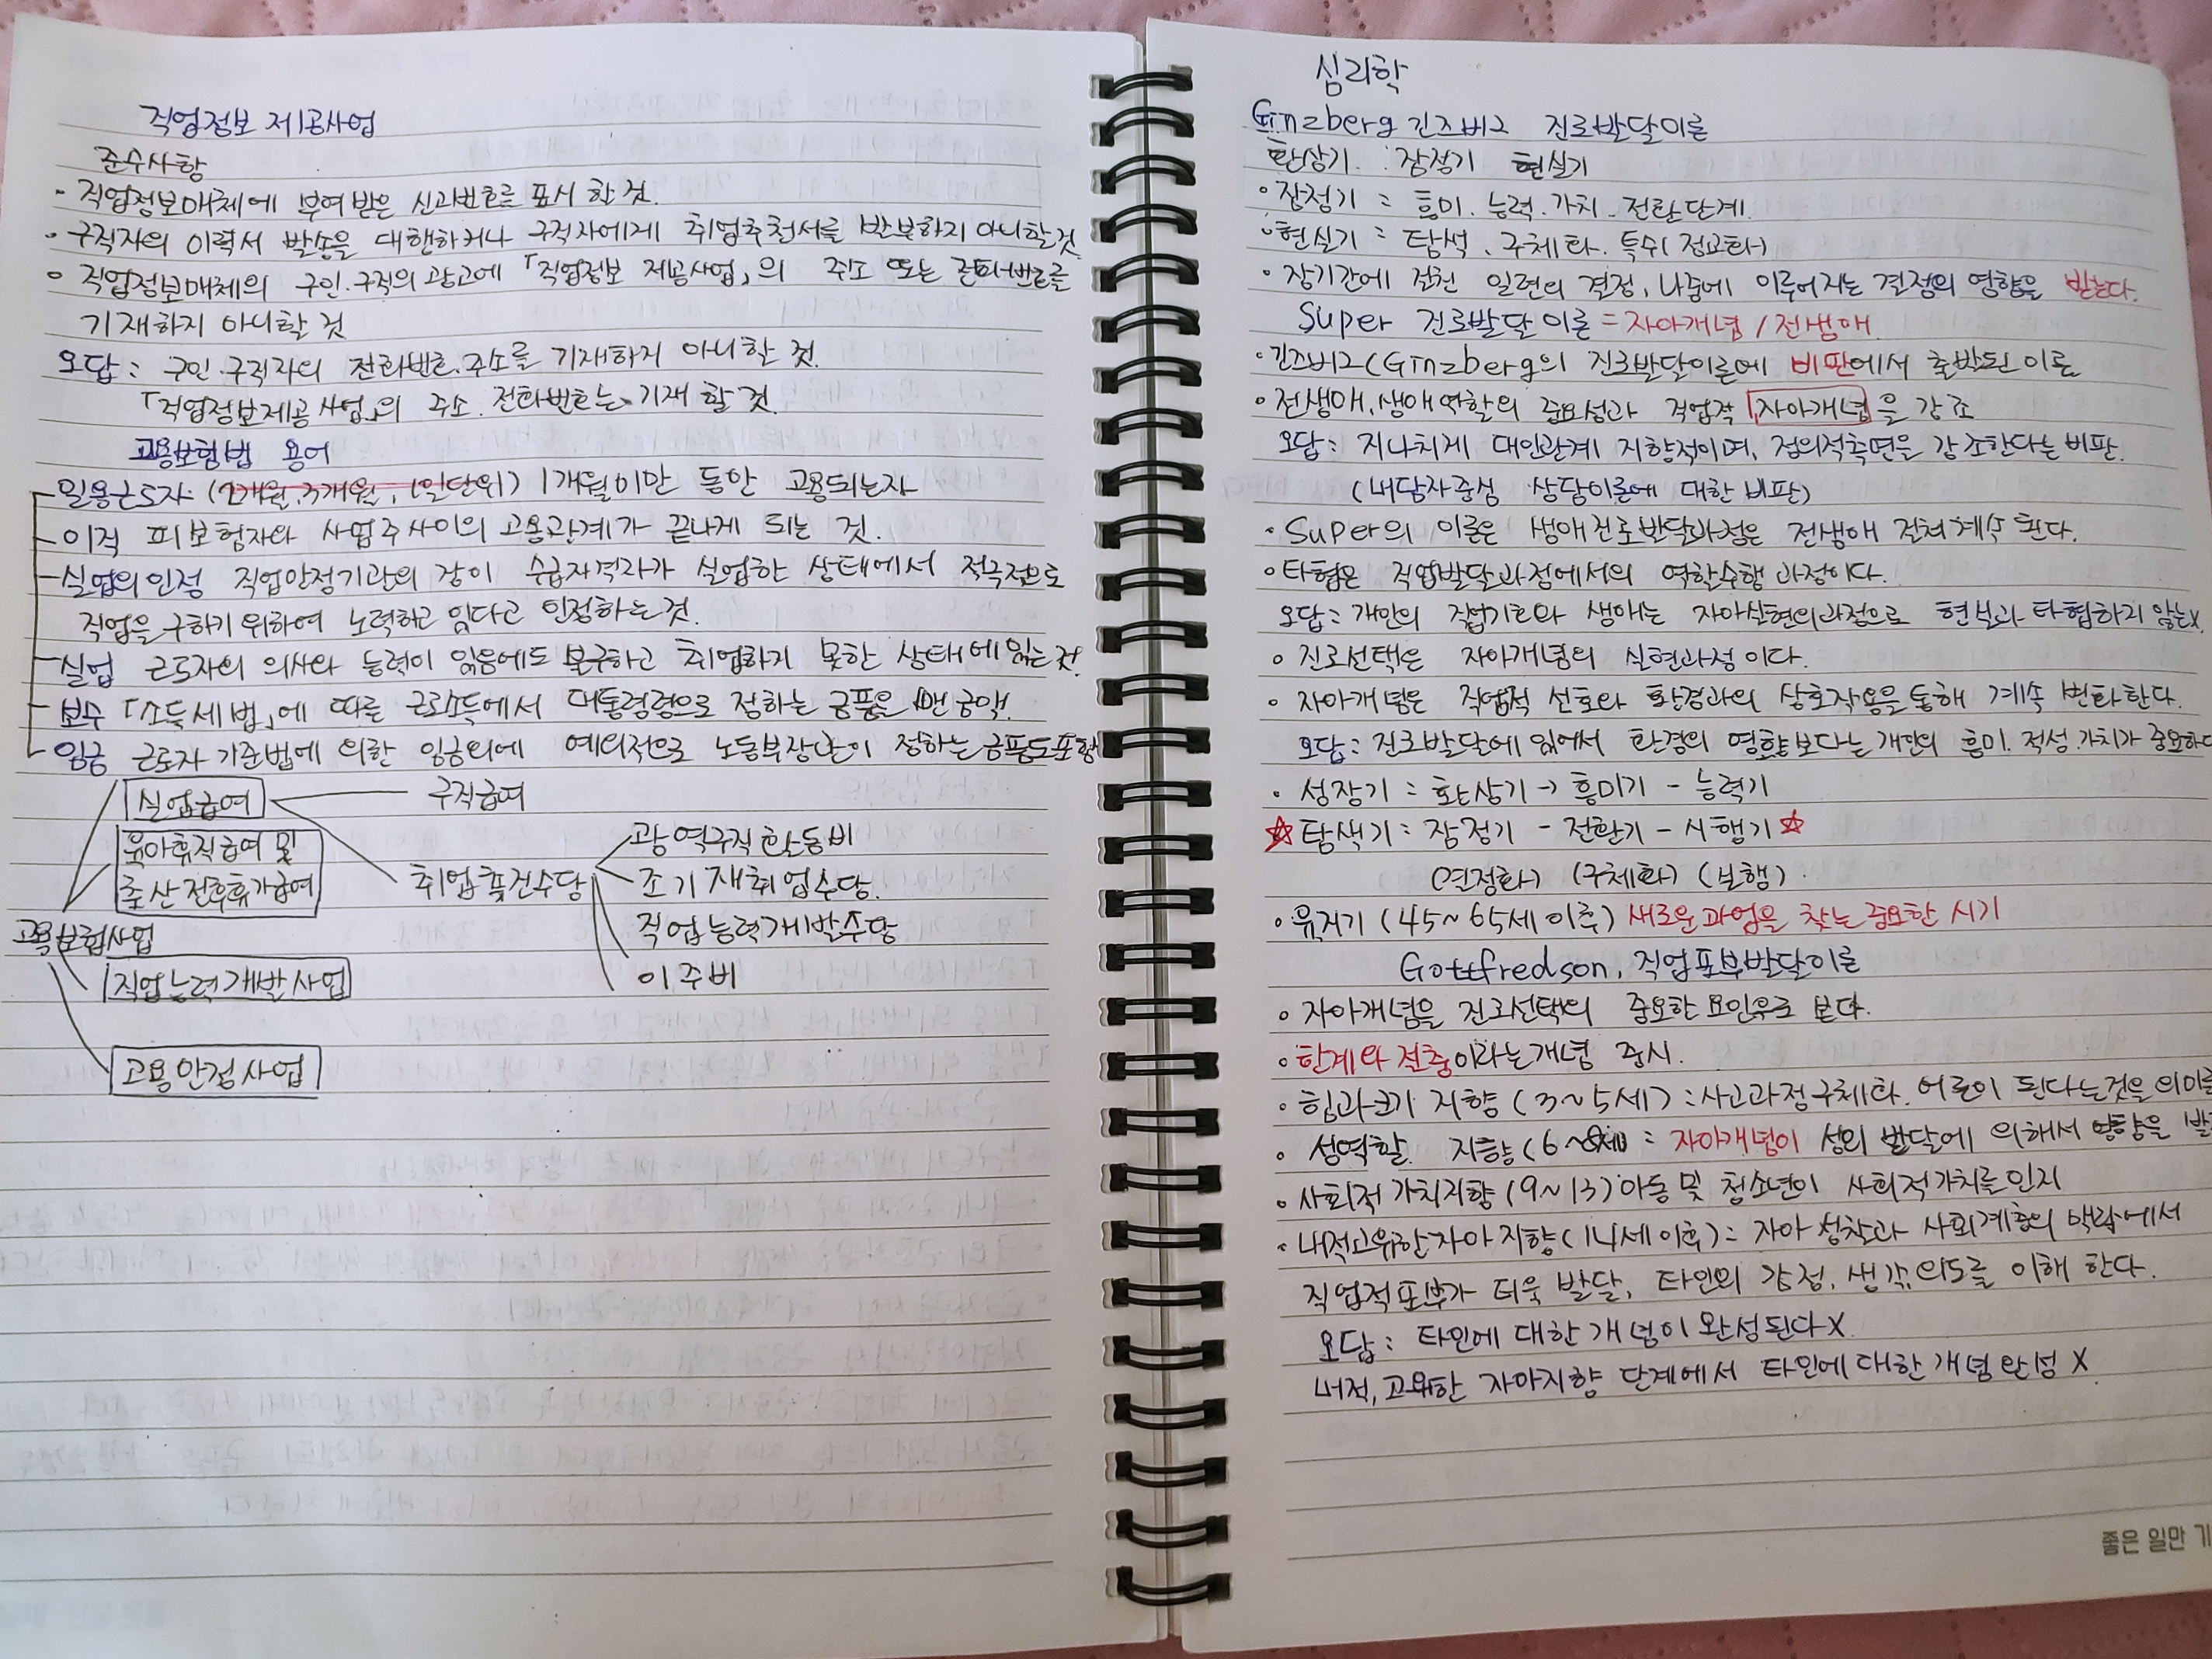 직업정보 제공사업
준수사항
· 직업정보매체에 부여 받은 신고번호를 표시 할 것.
· 구직자의 이력서 발송을 대행하거나 구직자에게 취업추천서를 발부하지 아니할것
· 직업정보매체의 구인·구직의 광고에 「직업정보 제공사업」의 주소 또는 전화번호를
기재하지 아니할 것
오답 : 구인·구직자의 전화번호.주소를 기재하지 아니할 것.
「직업정보제공사업」의 주소. 전화번호는 기재 할 것.
고용보험법 용어
일용근로자 (2개월.3개월, 1일단위) 1개월이만 동안 고용되는자
이직 피보험자와 사업주사이의 고용관계가 끝나게 되는 것.
실업의인정 직업안정기관의 장이 수급자격자가 실업한 상태에서 적극적으로
직업을 구하기 위하여 노력하고 있다고 인정하는것.
실업 근로자의 의사와 능력이 있음에도 불구하고 취업하지 못한 상태에있는것.
보수 「소득세법」에 따른 근로소득에서 대통령령으로 정하는 금품을 뺀금액.
임금 근로자 기준법에 의한 임금외에 예외적으로 노동부장관이 정하는 금품도포함
실업급여 구직급여
육아휴직급여 및
출산전후휴가급여
취업촉진수당
광역구직활동비
조기재취업수당.
직업능력개발수당
이주비
고용보험사업
직업능력개발사업
고용안정사업
심리학
Ginzberg 긴즈버그 진로발달이론
환상기. 잠정기 현실기
· 잠정기 = 흥미. 능력.가치. 전환단계.
· 현실기 = 탐색. 구체화. 특수(정교화)
· 장기간에 걸친 일련의 결정, 나중에 이루어지는 결정의 영향을 받는다.
Super 진로발달이론 = 자아개념 / 전생애
· 긴즈버그(Ginzberg의 진로발달이론에 비판에서 출발된 이론
· 전생애, 생애역할의 중요성과 직업적 자아개념을 강조
오답 : 지나치게 대인관계 지향적이며, 정의적측면을 강조한다는비판.
(내담자중심 상담이론에 대한 비판)
· Super의 이론은 생애진로발달과정은 전생애 걸쳐계속 된다.
· 타협은 직업발달과정에서의 역할수행 과정이다.
오답 : 개인의 직업기호와 생애는 자아실현의과정으로 현실과 타협하지 않는x
· 진로선택은 자아개념의 실현과정이다.
· 자아개념은 직업적 선호와 환경과의 상호작용을통해 계속 변화한다.
오답 : 진로발달에 있어서 환경의 영향보다는 개인의 흥미. 적성.가치가 중요하다
· 성장기 : 환상기 → 흥미기 - 능력기
☆ 탐색기 : 잠정기 - 전환기 - 시행기 ☆
(결정화) (구체화) (실행)
· 유지기 (45~65세이후) 새로운과업을 찾는 중요한 시기
Gottfredson, 직업포부발달이론
· 자아개념을 진로선택의 중요한요인으로 본다.
· 한계와 절충이라는개념 중시.
· 힘과크기 지향 (3~5세) : 사고과정구체화. 어른이 된다는것을의미를
· 성역할 지향(6~8세) = 자아개념이 성의 발달에 의해서 영향을 받
· 사회적 가치지향 (9~13) 아동 및 청소년이 사회적가치를 인지
· 내적고유한자아지향(14세이후) = 자아성찰과 사회계층의 맥락에서
직업적포부가 더욱 발달, 타인의 감정, 생각, 의도를 이해 한다.
오답 : 타인에 대한 개념이 완성된다X.
내적, 고유한 자아지향 단계에서 타인에대한개념완성 X
좋은 일만 기